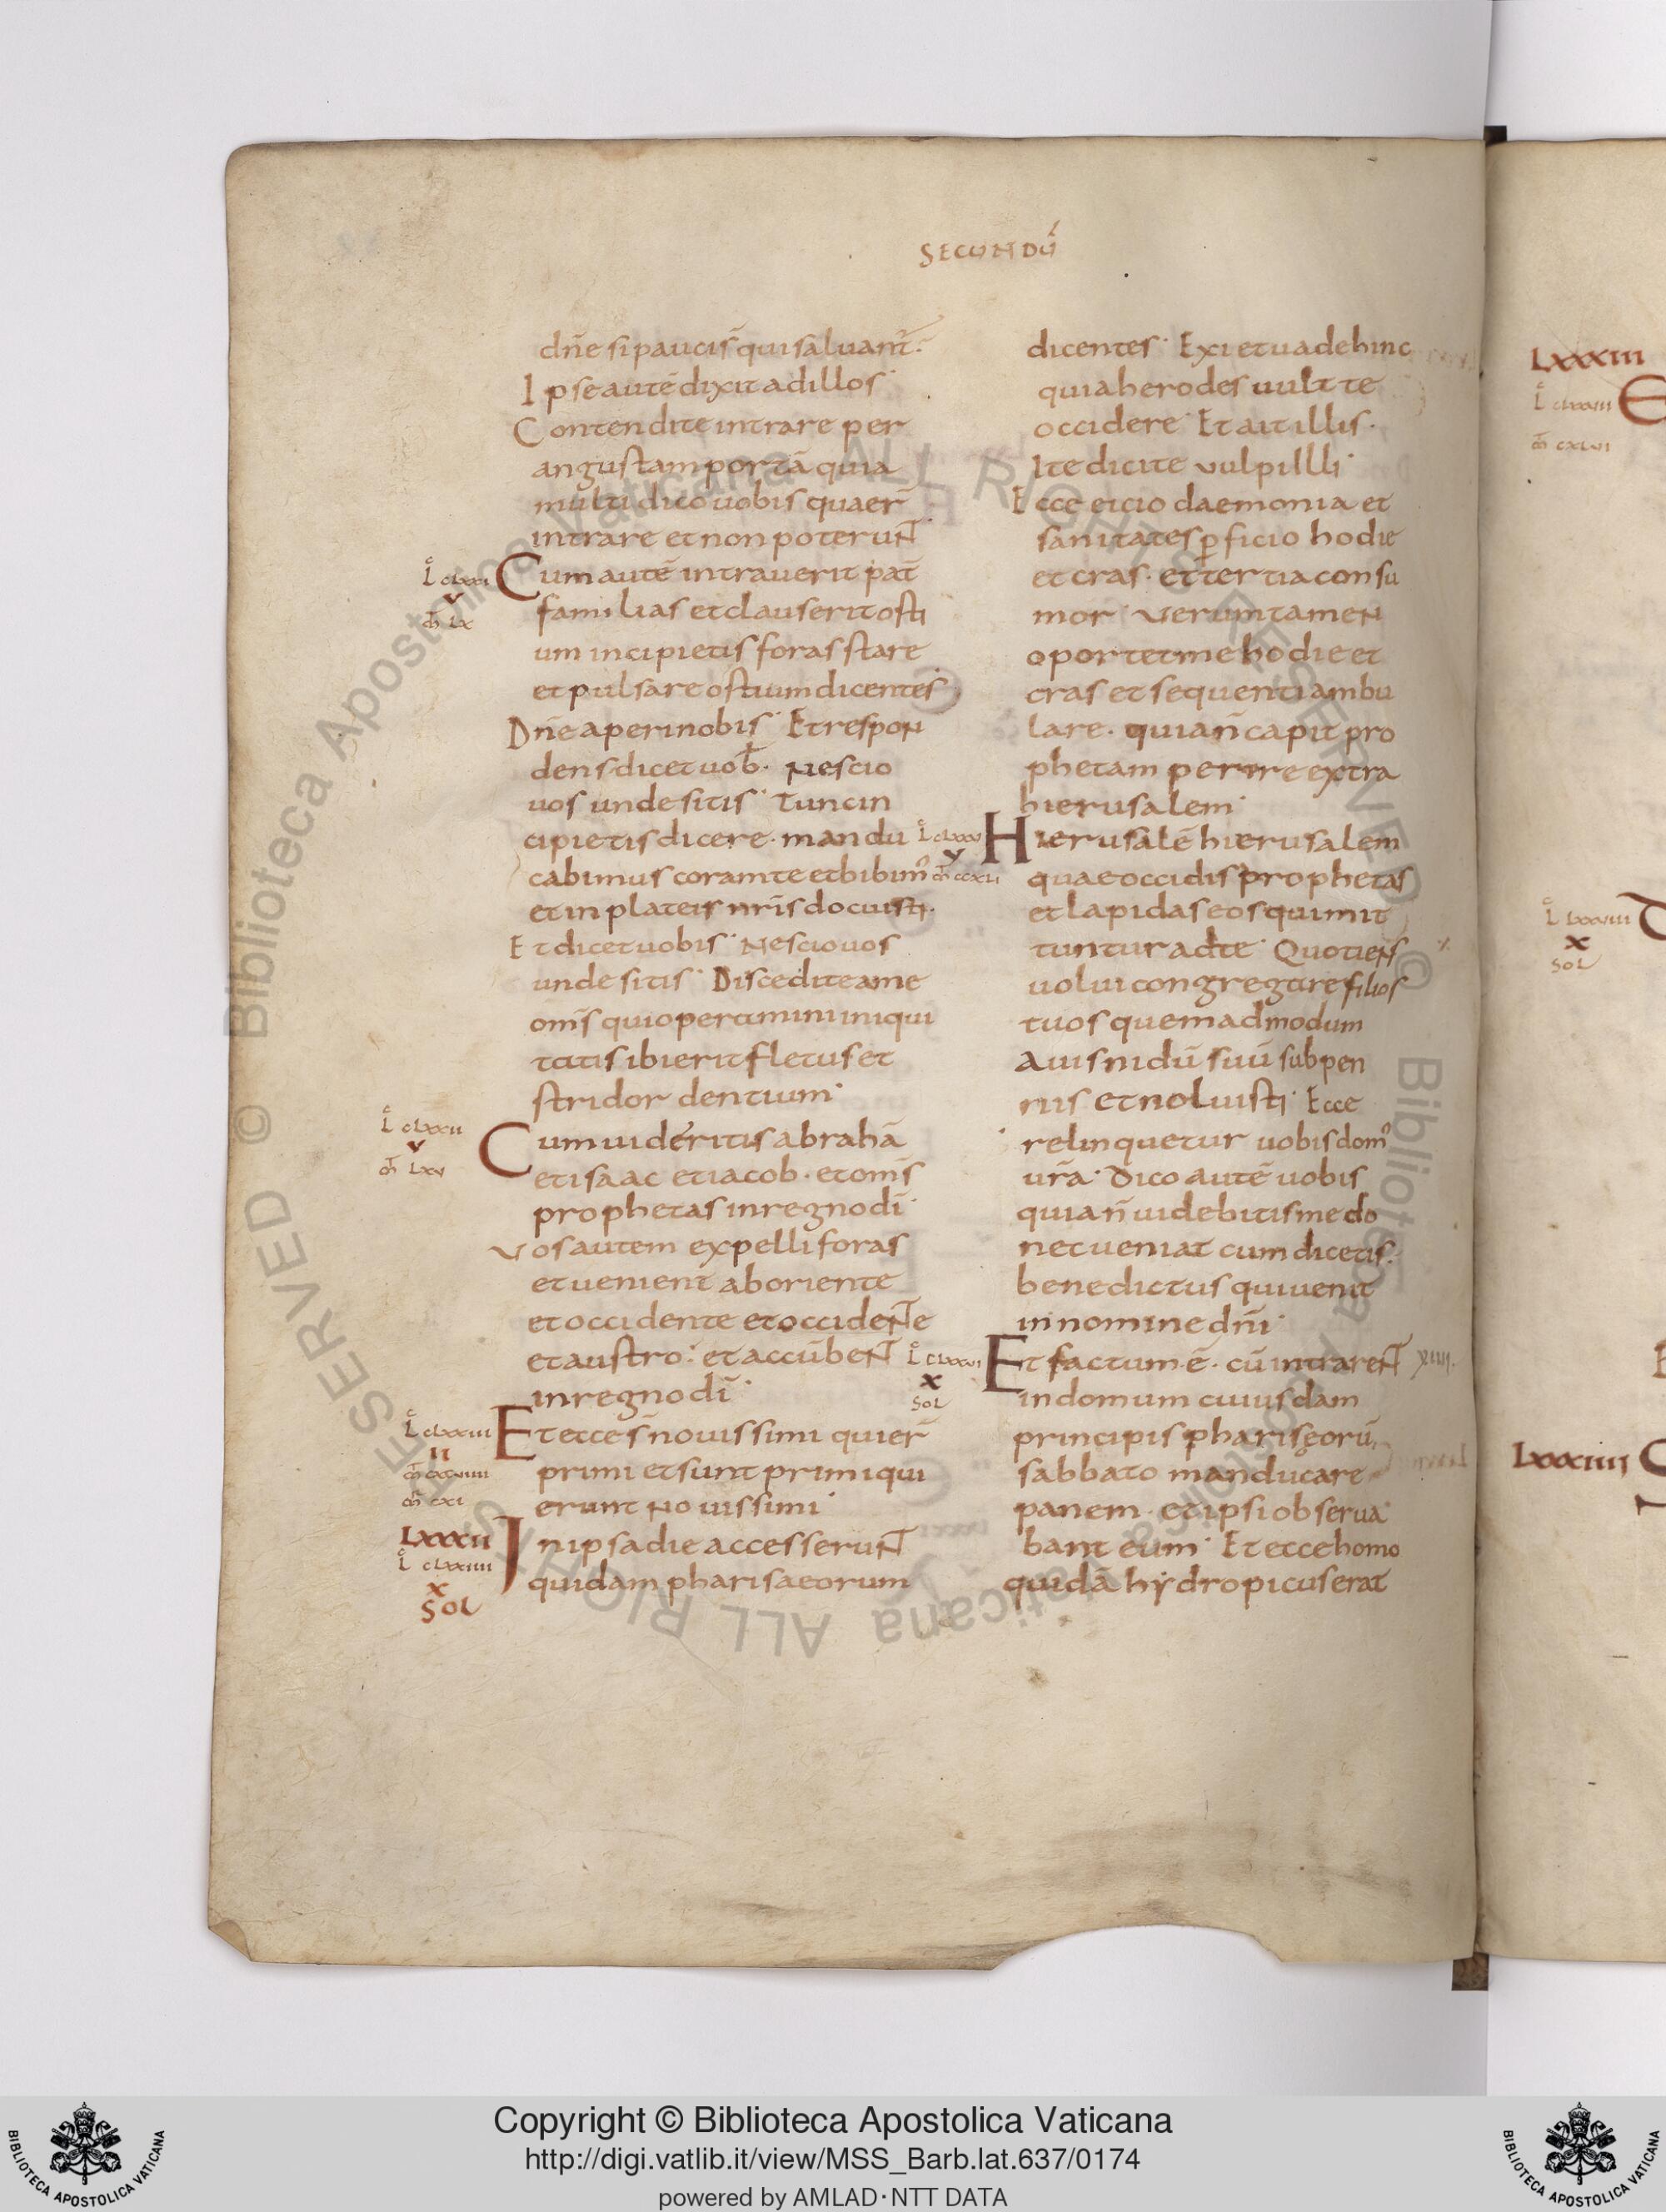 SECUNDṼ
dñe si paucis̄ qui saluant̄.
Ipse autē dixit ad illos
Contendite intrare per
angustam portā quia
multi dico uobis quaer̄
intrare et non poterunt̄
L̊ clxxi
v
m̄ lx
Cum autē intrauerit pat̄
familias et clauserit osti
um incipietis foras stare
et pulsare ostium dicentes
Dn̄e aperi nobis Et respon
dens dicet uob̄. Nescio
uos unde sitis Tunc in
cipietis dicere. mandu
cabimus coram te et bibim᾽
et in plateis nr̄is docuisti.
Et dicet uobis Nescio uos
unde sitis Discedite a me
omīs qui operamini iniqui
tatis ibi erit fletus et
stridor dentium
L̊ clxxii
v
m̄ lxv
Cum uideritis abrahā
et isaac et iacob. et omīs
prophetas in regno dī
Vos autem expelli foras
et uenient̄ ab oriente
et occidente et occidente
et austro. et accūbent̄
in regno dī
L̊ clxxiii
II
Et ecce s̄ nouissimi qui er̄
primi et sunt primi qui
erunt nouissimi
LXXXII
L̊ clxxiiii
x
Sol
In ipsa die accesserunt̄
quidam pharisaeorum
dicentes Exi et uade hinc
quia herodes uult te
occidere Et ait illis.
Ite dicite vulpi illi
Ecce eicio daemonia et
sanitates p̄ficio hodie
et cras. et tertia consu
mor Verumtamen
oportet me hodie et
cras et sequenti ambu
lare. quia n̄ capit pro
phetam perire extra
hierusalem
L̊ clxxv
v
m̄ ccxli
Hierusalē hierusalem
quae occidis prophetas
et lapidas eos qui mit
tuntur ad te Quotiens
uolui congregare filios
tuos quemadmodum
auis nidū suū sub pen
nis et noluisti Ecce
relinquetur uobis dom᾽
ur̄a Dico autē uobis
quia n̄ uidebitis me do
nec ueniat cum dicetis.
benedictus qui uenit
in nomine dn̄i
L̊ clxxvi
x
Sol
Et factum ē. cū intrarent̄ xiiii.
in domum cuiusdam
principis pharisęorū
sabbato manducare
panem. et ipsi obserua
bant eum Et ecce homo
quidā hydropicus erat
LXXXIII
L̊ clxxvii
m̄ cxlvi
E
x
Sol
LXXXIIII
Copyright © Biblioteca Apostolica Vaticana
http://digi.vatlib.it/view/MSS_Barb.lat.637/0174
powered by AMLAD·NTT DATA
BIBLIOTECA APOSTOLICA VATICANA
BIBLIOTECA APOSTOLICA VATICANA
© Biblioteca Apostolica Vaticana ALL RIGHTS RESERVED
© Biblioteca Apostolica Vaticana ALL RIGHTS RESERVED